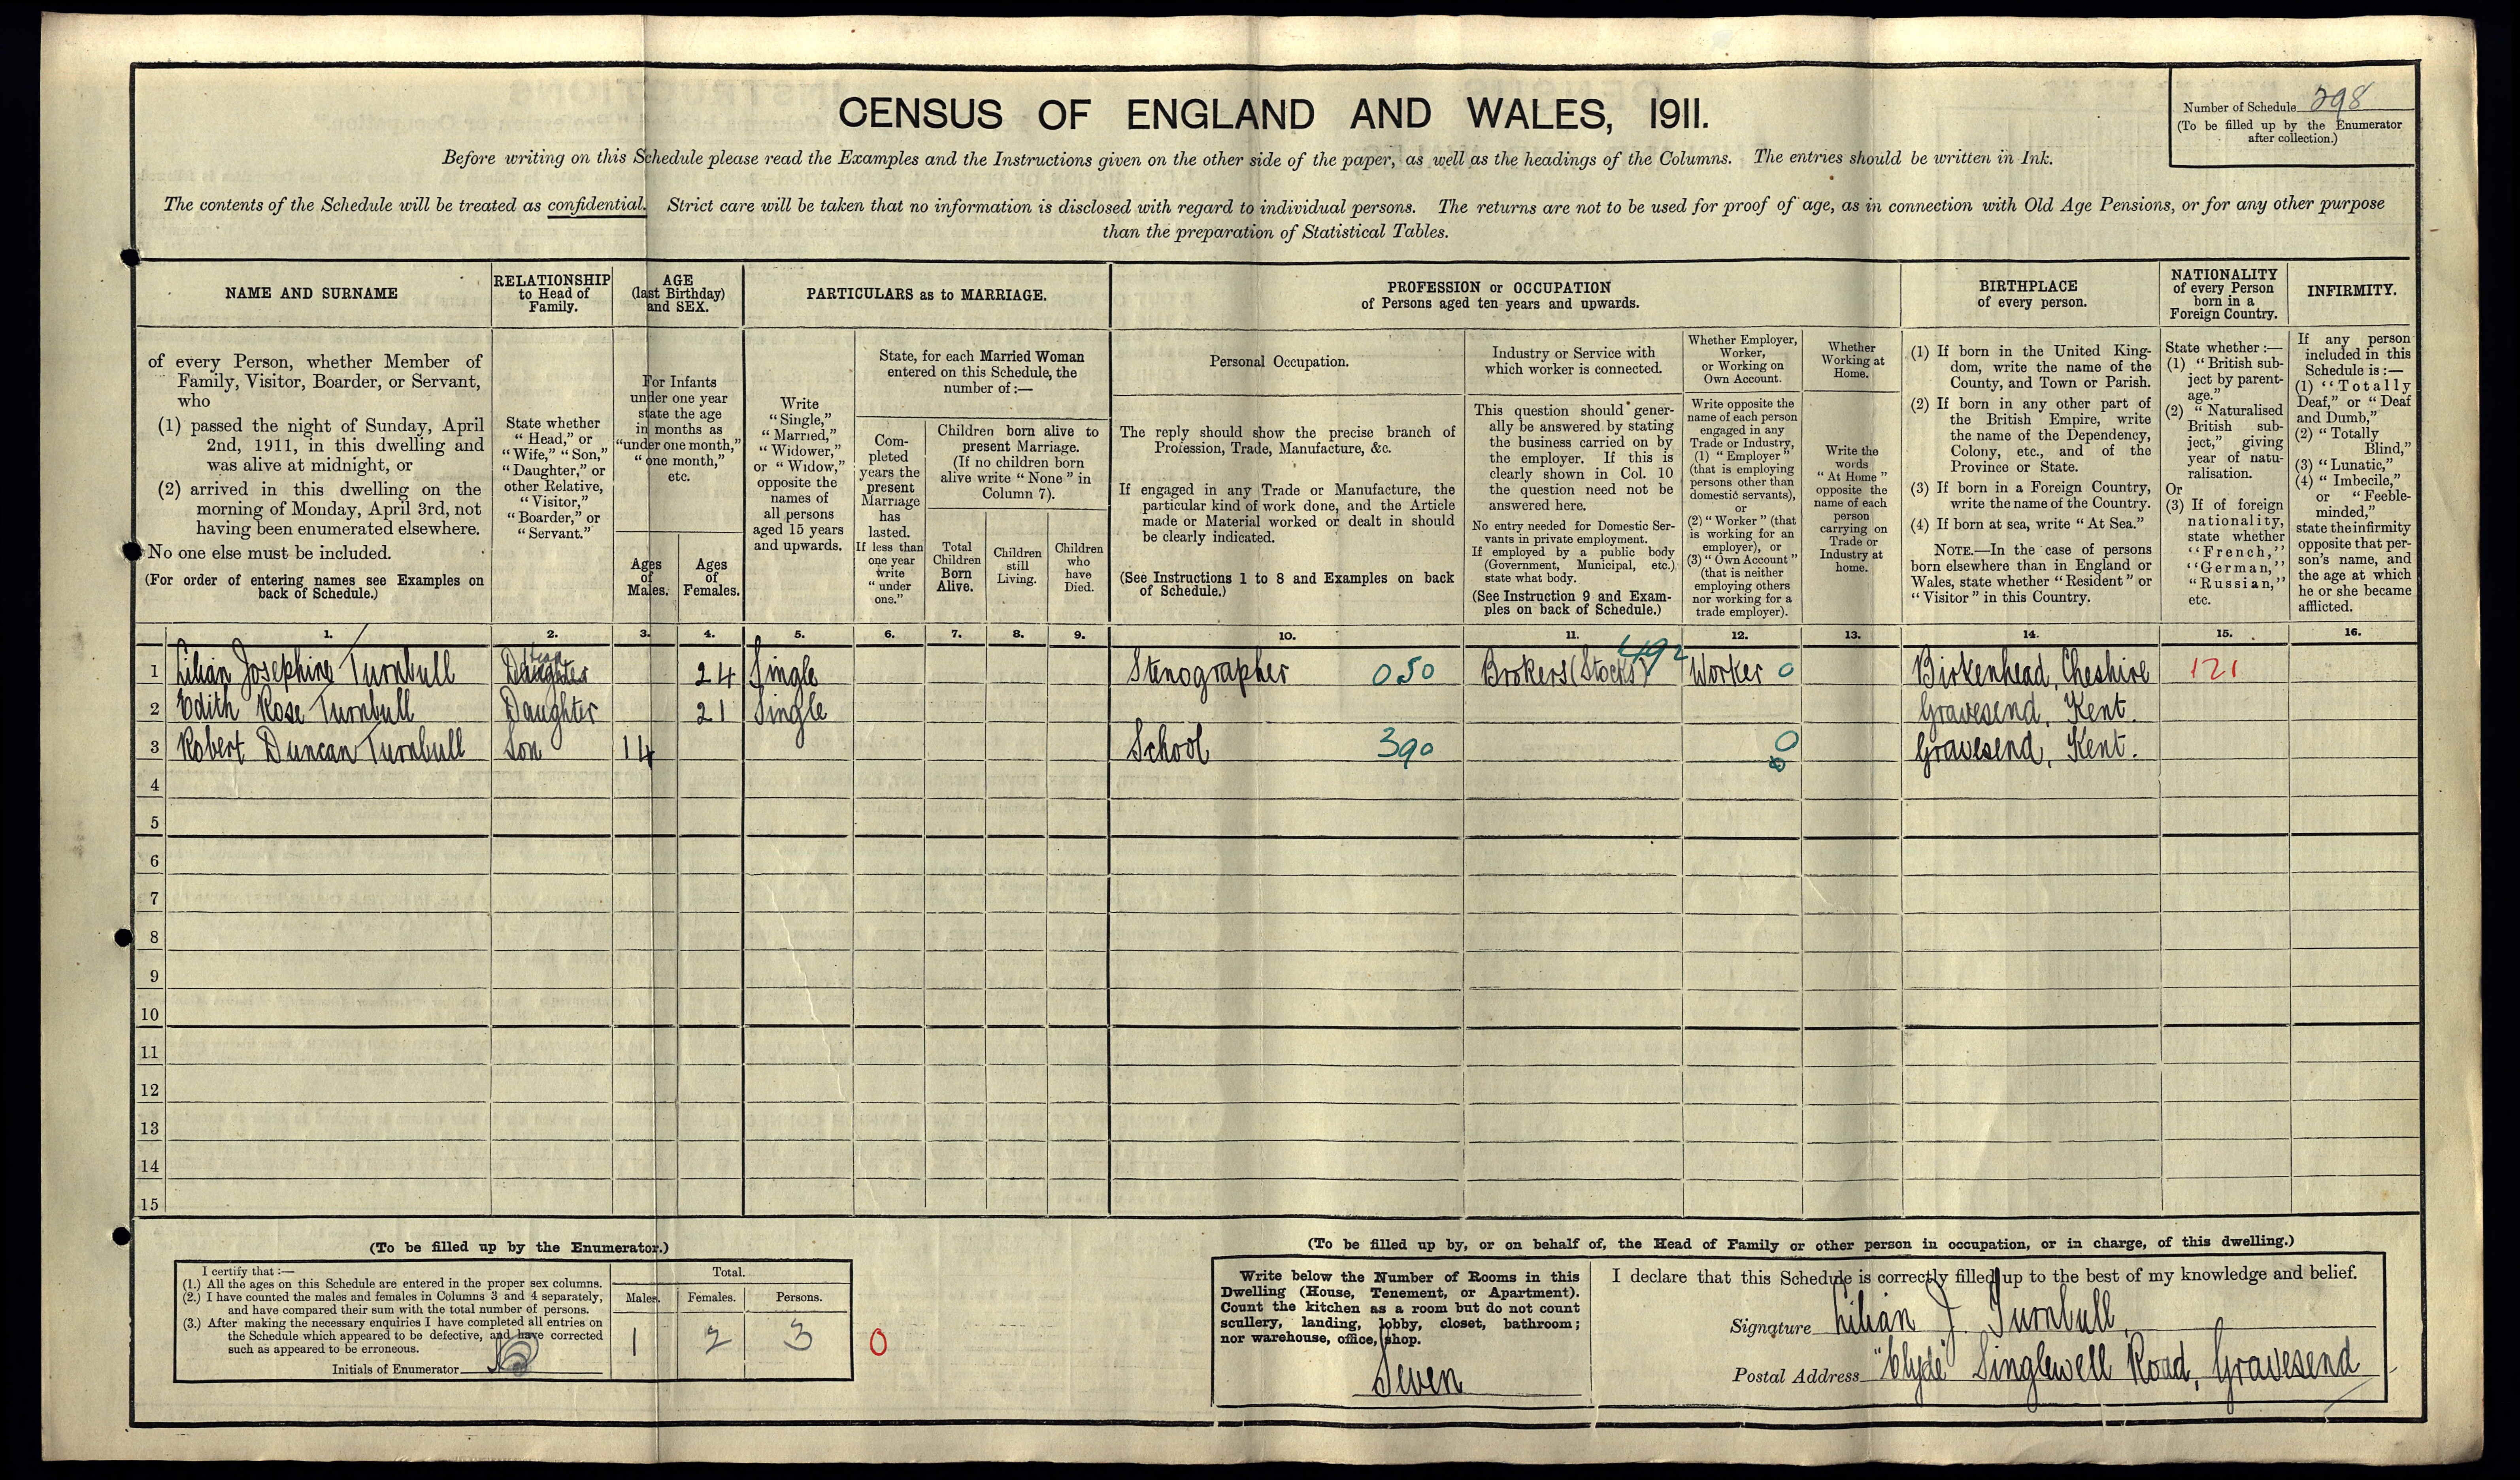 CENSUS OF ENGLAND AND WALES, 1911.
Number of Schedule 298
(To be filled up by the Enumerator
after collection.)
Before writing on this Schedule please read the Examples and the Instructions given on the other side of the paper, as well as the headings of the Columns. The entries should be written in Ink.
The contents of the Schedule will be treated as confidential. Strict care will be taken that no information is disclosed with regard to individual persons. The returns are not to be used for proof of age, as in connection with Old Age Pensions, or for any other purpose
than the preparation of Statistical Tables.
NAME AND SURNAME
of every Person, whether Member of
Family, Visitor, Boarder, or Servant,
who
(1) passed the night of Sunday, April
2nd, 1911, in this dwelling and
was alive at midnight, or
(2) arrived in this dwelling on the
morning of Monday, April 3rd, not
having been enumerated elsewhere.
No one else must be included.
(For order of entering names see Examples on
back of Schedule.)
RELATIONSHIP
to Head of
Family.
State whether
"Head," or
"Wife," "Son,"
"Daughter," or
other Relative,
"Visitor,"
"Boarder," or
"Servant."
AGE
(last Birthday)
and SEX.
For Infants
under one year
state the age
in months as
"under one month,"
"one month,"
etc.
Ages
of
Males.
Ages
of
Females.
PARTICULARS as to MARRIAGE.
Write
"Single,"
"Married,"
"Widower,"
or "Widow,"
opposite the
names of
all persons
aged 15 years
and upwards.
State, for each Married Woman
entered on this Schedule, the
number of:—
Com-
pleted
years the
present
Marriage
has
lasted.
If less than
one year
write
"under
one."
Children born alive to
present Marriage.
(If no children born
alive write "None" in
Column 7).
Total
Children
Born
Alive.
Children
still
Living.
Children
who
have
Died.
PROFESSION or OCCUPATION
of Persons aged ten years and upwards.
Personal Occupation.
The reply should show the precise branch of
Profession, Trade, Manufacture, &c.
If engaged in any Trade or Manufacture, the
particular kind of work done, and the Article
made or Material worked or dealt in should
be clearly indicated.
(See Instructions 1 to 8 and Examples on back
of Schedule.)
Industry or Service with
which worker is connected.
This question should gener-
ally be answered by stating
the business carried on by
the employer. If this is
clearly shown in Col. 10
the question need not be
answered here.
No entry needed for Domestic Ser-
vants in private employment.
If employed by a public body
(Government, Municipal, etc.)
state what body.
(See Instruction 9 and Exam-
ples on back of Schedule.)
Whether Employer,
Worker,
or Working on
Own Account.
Write opposite the
name of each person
engaged in any
Trade or Industry,
(1) "Employer"
(that is employing
persons other than
domestic servants),
or
(2) "Worker" (that
is working for an
employer), or
(3) "Own Account"
(that is neither
employing others
nor working for a
trade employer).
Whether
Working at
Home.
Write the
words
"At Home"
opposite the
name of each
person
carrying on
Trade or
Industry at
home.
BIRTHPLACE
of every person.
(1) If born in the United King-
dom, write the name of the
County, and Town or Parish.
(2) If born in any other part of
the British Empire, write
the name of the Dependency,
Colony, etc., and of the
Province or State.
(3) If born in a Foreign Country,
write the name of the Country.
(4) If born at sea, write "At Sea."
NOTE.—In the case of persons
born elsewhere than in England or
Wales, state whether "Resident" or
"Visitor" in this Country.
NATIONALITY
of every Person
born in a
Foreign Country.
State whether:—
(1) "British sub-
ject by parent-
age."
(2) "Naturalised
British sub-
ject," giving
year of natu-
ralisation.
Or
(3) If of foreign
nationality,
state whether
"French,"
"German,"
"Russian,"
etc.
INFIRMITY.
If any person
included in this
Schedule is:—
(1) "Totally
Deaf," or "Deaf
and Dumb,"
(2) "Totally
Blind,"
(3) "Lunatic,"
(4) "Imbecile,"
or "Feeble-
minded,"
state the infirmity
opposite that per-
son's name, and
the age at which
he or she became
afflicted.
1. 2. 3. 4. 5. 6. 7. 8. 9. 10. 11. 12. 13. 14. 15. 16.
Head 492
1 Lilian Josephine Turnbull Daughter 24 Single Stenographer 050 Brokers (Stocks) Worker 0 Birkenhead, Cheshire 121
2 Edith Rose Turnbull Daughter 21 Single Gravesend, Kent.
3 Robert Duncan Turnbull Son 14 School 390 0 Gravesend, Kent.
4
5
6
7
8
9
10
11
12
13
14
15
(To be filled up by the Enumerator.)
I certify that:—
(1.) All the ages on this Schedule are entered in the proper sex columns.
(2.) I have counted the males and females in Columns 3 and 4 separately,
and have compared their sum with the total number of persons.
(3.) After making the necessary enquiries I have completed all entries on
the Schedule which appeared to be defective, and have corrected
such as appeared to be erroneous.
Initials of Enumerator
Total.
Males. Females. Persons.
1 2 3 0
(To be filled up by, or on behalf of, the Head of Family or other person in occupation, or in charge, of this dwelling.)
Write below the Number of Rooms in this
Dwelling (House, Tenement, or Apartment).
Count the kitchen as a room but do not count
scullery, landing, lobby, closet, bathroom;
nor warehouse, office, shop.
Seven
I declare that this Schedule is correctly filled up to the best of my knowledge and belief.
Signature Lilian J. Turnbull
Postal Address "Clyde" Singlewell Road, Gravesend